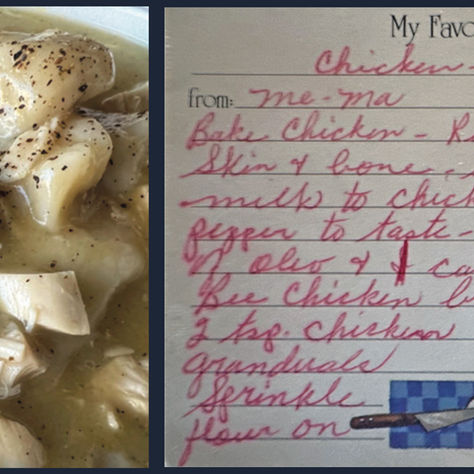 My Favo
Chicken-
from: me-ma
Bake Chicken - R
Skin & bone.
milk to chick
pepper to taste -
of oleo & 1 ca
Bee Chicken b
2 tsp. chicken
granduals
Sprinkle
flour on